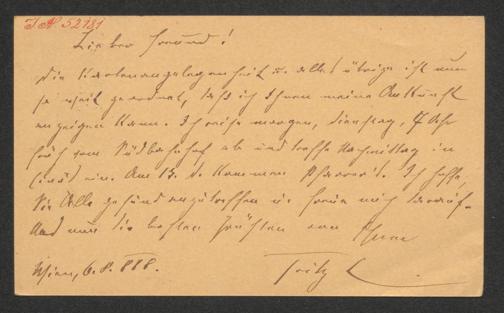 I.N. 52181
Lieber Freund!
Die Kartenangelegenheit u. alles übrige ist nun
so weit geordnet, daß ich Ihnen meine Ankunft
anzeigen kann. Ich reise morgen, Dienstag, Uhr
früh vom Südbahnhof ab und treffe Nachmittag in
ein. Am 13. d. kommen Ich hoffe,
Sie Alle gesund anzutreffen u. freue mich darauf.
Und nun die besten Grüßen von Ihrem
Wien, 6.8.888. Fritz